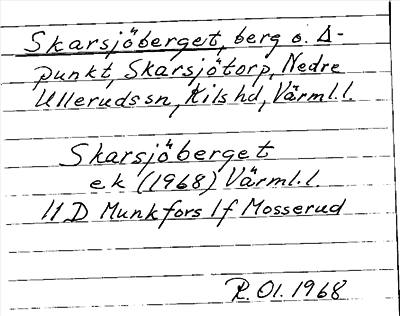 Skarsjöberget, berg o. Δ-
punkt, Skarsjötorp, Nedre
Ulleruds sn, Kils hd, Värml.l.
Skarsjöberget
ek (1968) Värml.l.
11D Munkfors 1f Mosserud
R.Ol. 1968